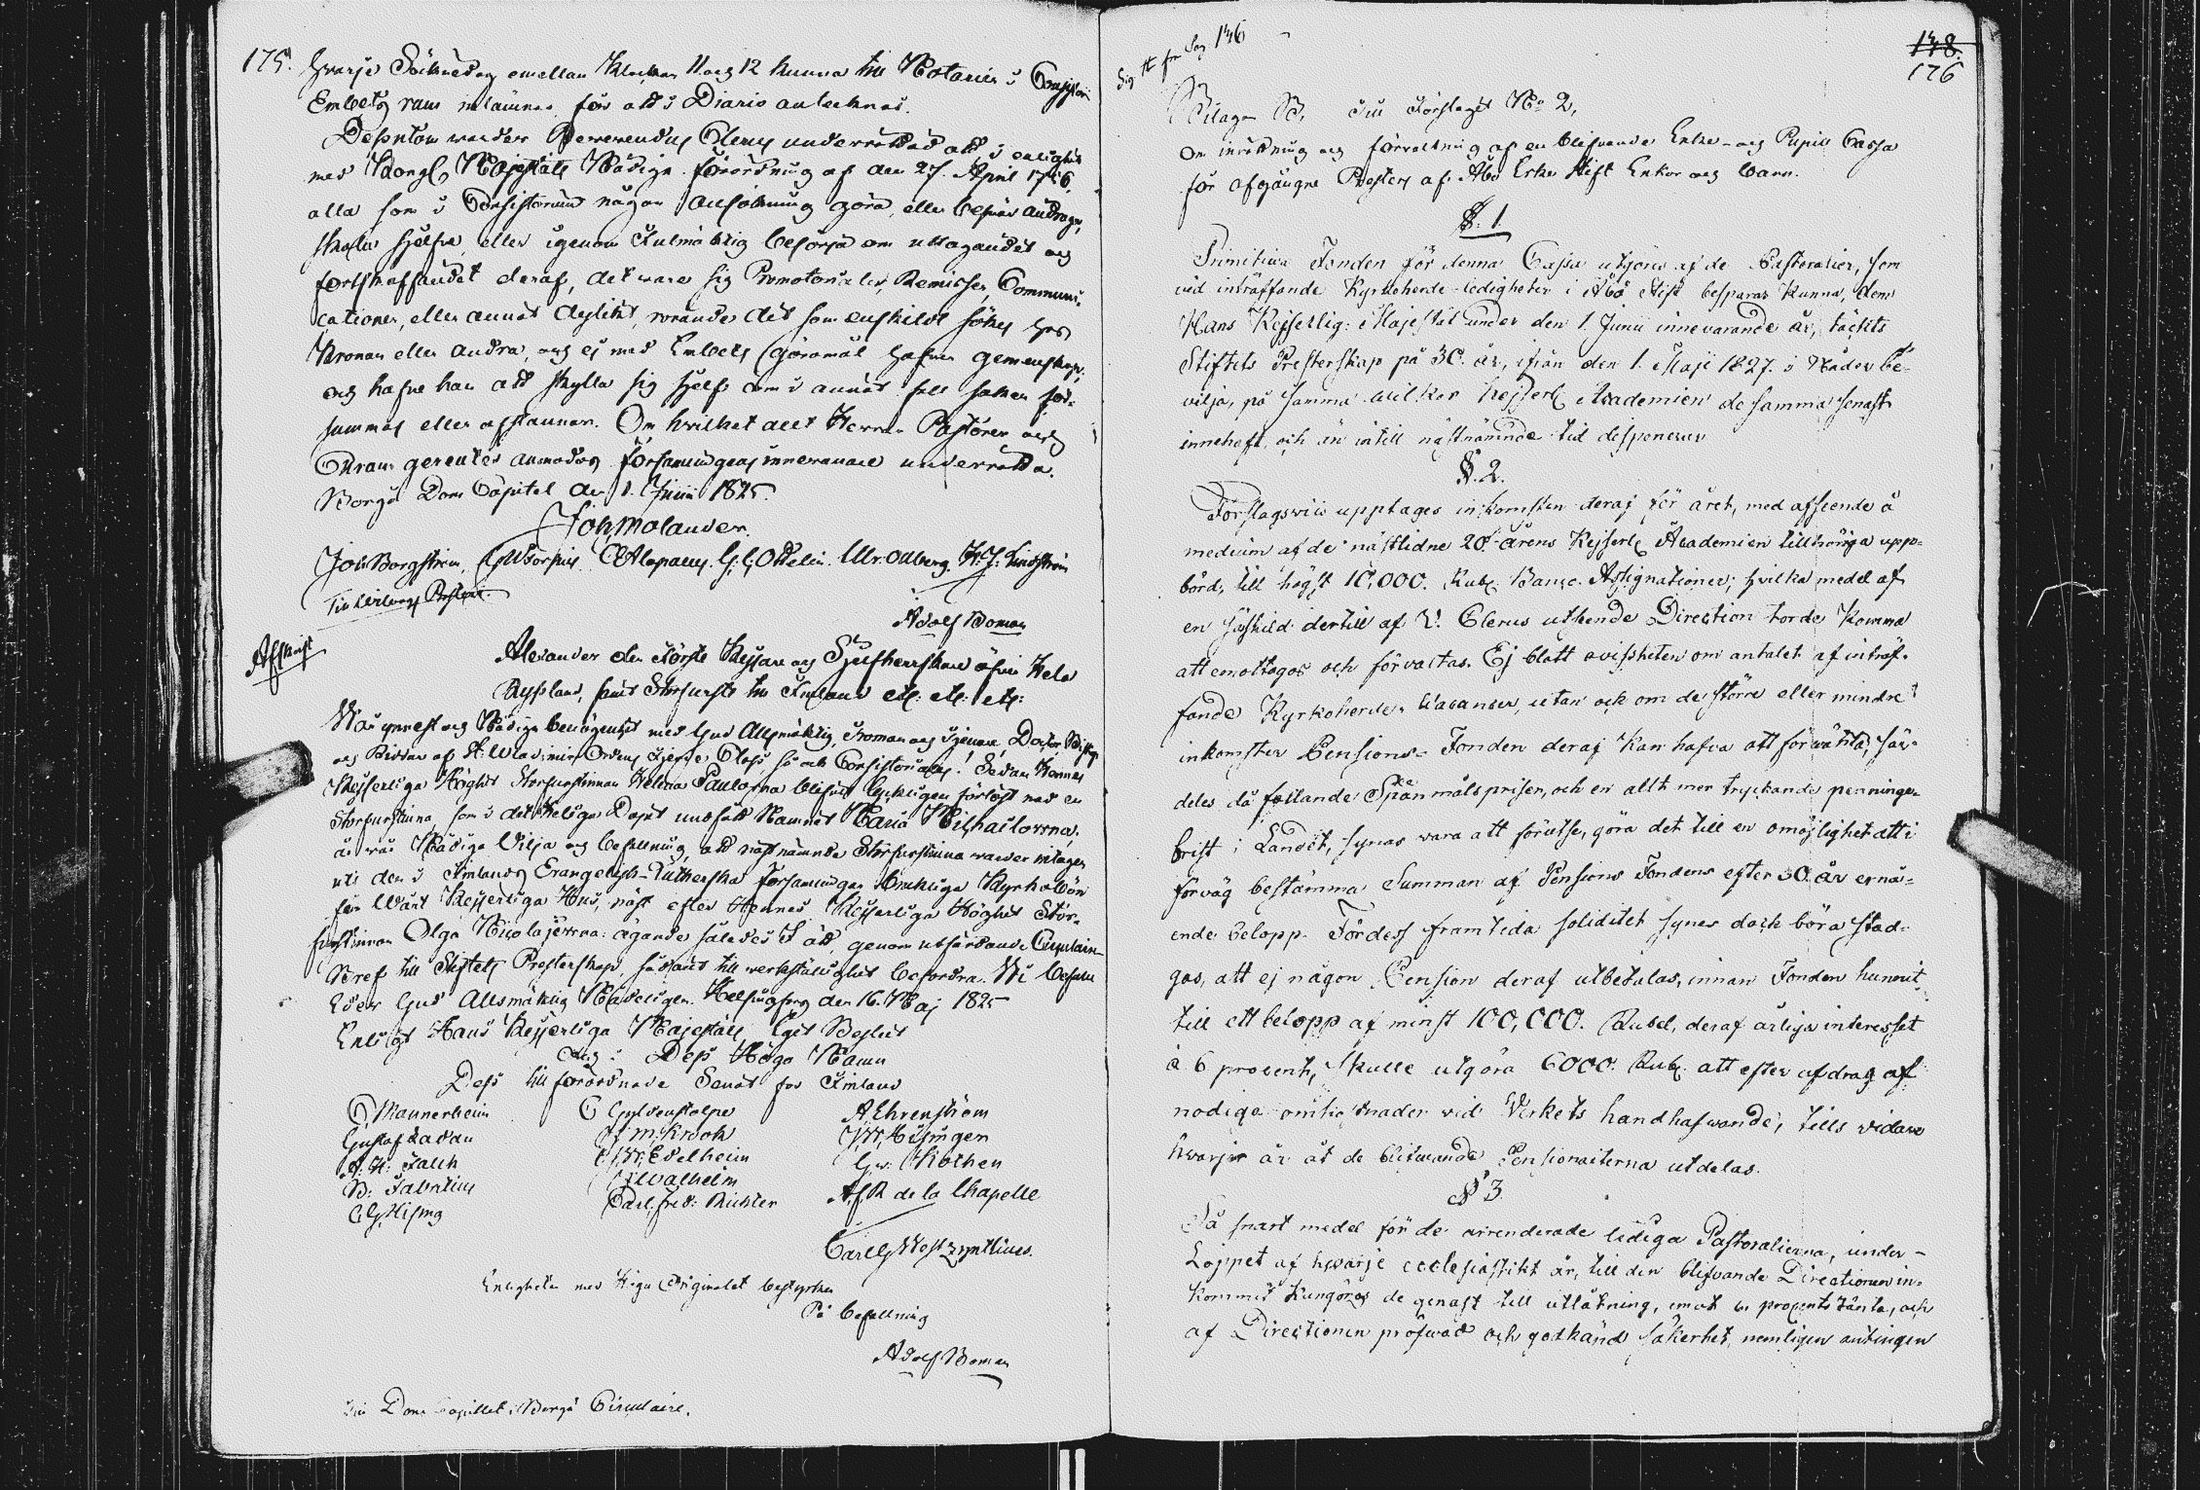 175.
hvarje Söknedag emellan Klockan 11 och 12 kunna till Notarien i Consistorii
Embets rum inlämnas för att i Diario antecknas.
Dessutom warder Reverendus Clerus underrättad att i enlighet
med Kongl. Majestäts Nådiga förordning af den 27. April 1756.
alla som i Consistorium någon ansökning göra, eller besvär andraga,
skola sjelfve, eller igenom Fulmäktig besörja om uttagandet och
fortskaffandet deraf, det ware sig Promotorialer, Remisser, Communi-
cationer, eller annat dylikt, rörande det som enskildt sökes hos
Kronan eller andra, och ej med Embets göromål hafver gemenskap,
och hafve han att skylla sig sjelf om i annat fall saken för-
summas eller afstannar. Om hvilket allt Herrar Pastorer och
deras gerentes anmodas församlingens innevånare underrätta.
Borgå Dom Capitel den 1. Junii 1825.
Joh. Molander.
Joh. Borgström. C. Alopaeus. G. G. Ottelin. Ulr. Ollberg. H. J. Lindström
Adolf Boman
Afskrift
Alexander den Förste Kejsare och Sjelfherrskare öfver Hela
Ryssland, samt Storfurste till Finland etc. etc. etc.
Vår ynnest och Nådiga benägenhet med Gud Allsmäktig, Troman och Tjenare, Doctor, Biskop
och Riddar af St. Wladimirs Ordens Tjerde Class så ock Consistoriales! Sedan Hennes
Kejserliga Höghet Storfurstinnan Helena Paulovna blifvit lyckligen förlöst med en
Storfurstinna, som i det Heliga Dopet undfått Namnet Maria Michailovna,
är vår Nådiga Vilja och befallning, att nästnämnde Storfurstinna warder intagen
uti den i Finlands Evangelisk-Lutherska församlingar brukliga Kyrkobön
för Wårt Kejserliga Hus, näst efter Hennes Kejserliga Höghet Stor-
furstinnan Olga Nicolajewna: ägande således I att genom utfärdande Circulaire
Bref till Stiftets Presterskap, sådant till verkställighet befordra. Wi befalle
Eder Gud Allsmäktig Nådeligen. Helsingfors den 16. Maj 1825
Enligt Hans Kejserliga Majestäts Eget Beslut
och i Dess Höga Namn
Dess tillförordnade Senat för Finland
C. Mannerheim C Gyldenstolpe A. Ehrenström
Gustaf Ladau J. M. Krook J. W. Hisingen
A. H. Falck C. W. Edelheim G. W. Rothen
B. Fabritius C. J. Walheim A. F. R de la Chapelle
C. G. Hising Carl Fred: Richter
Carl G. Wost
Enligheten med Höga Originalet bestyrker
På befallning
Adolf Boman
Från Dom Capitlet i Borgå Circulaire.
Sig 146
148.
176
Bilaga B, till Förslaget No 2,
Om inrättning och förvaltning af en blifvande Enke- och Pupill Cassa
för afgångne Presters af Åbo Erke Stift Enkor och barn.
§. 1
Primitiva Fonden för denna Cassa utgöres af de Pastoralier, som
vid inträffande Kyrkoherde-ledigheter i Åbo Stift besparas kunna, dem
Hans Kejserlig: Majestät under den 1. Junii innevarande år, täckts
Stiftets Presterskap på 30. år, ifrån den 1. Maji 1827. i Nåder be-
vilja, på samma vilkor Kejserl. Academien de samma senast
innehaft, och än intill nästnämnde tid disponerar
§. 2.
Förslagsvis upptages inkomsten deraf för året, med afseende å
medium af de nästlidne 20. årens Kejserl. Academien tillhöriga upp-
börd, till högst 10,000. Rub. Banco Assignationer; hvilka medel af
en särskild dertill af V. Clerus utsende Direction torde komma
att emottagas och förvaltas. Ej blott ovissheten om antalet af inträf-
fande Kyrkoherde-Vacanser, utan ock om de större eller mindre
inkomster Pensions-Fonden deraf kan hafva att förvänta, sär-
deles då fallande Spannmålspriser, och en allt mer tryckande penninge-
brist i Landet, synas vara att förutse, göra det till en omöjlighet att i
förväg bestämma Summan af Pensions Fondens efter 30. år ernå-
ende belopp. För dess framtida soliditet synes dock böra stad-
gas, att ej någon Pension deraf utbetalas, innan Fonden hunnit
till ett belopp af minst 100,000. Rubel, deraf årliga interesset
à 6 procent, skulle utgöra 6000. Rub. att efter afdrag af
nödiga omkostnader vid Verkets handhafvande, tills vidare
hwarje år åt de blifwande Pensionaiterna utdelas.
§ 3.
Så snart medel för de arrenderade lediga Pastoralierna, under-
Loppet af hwarje ecclesiastikt år, till den blifvande Directionen in-
kommit kungöras de genast till utlåning, emot 6 procents ränta, och
af Directionen pröfvad och godkänd säkerhet, nemligen antingen